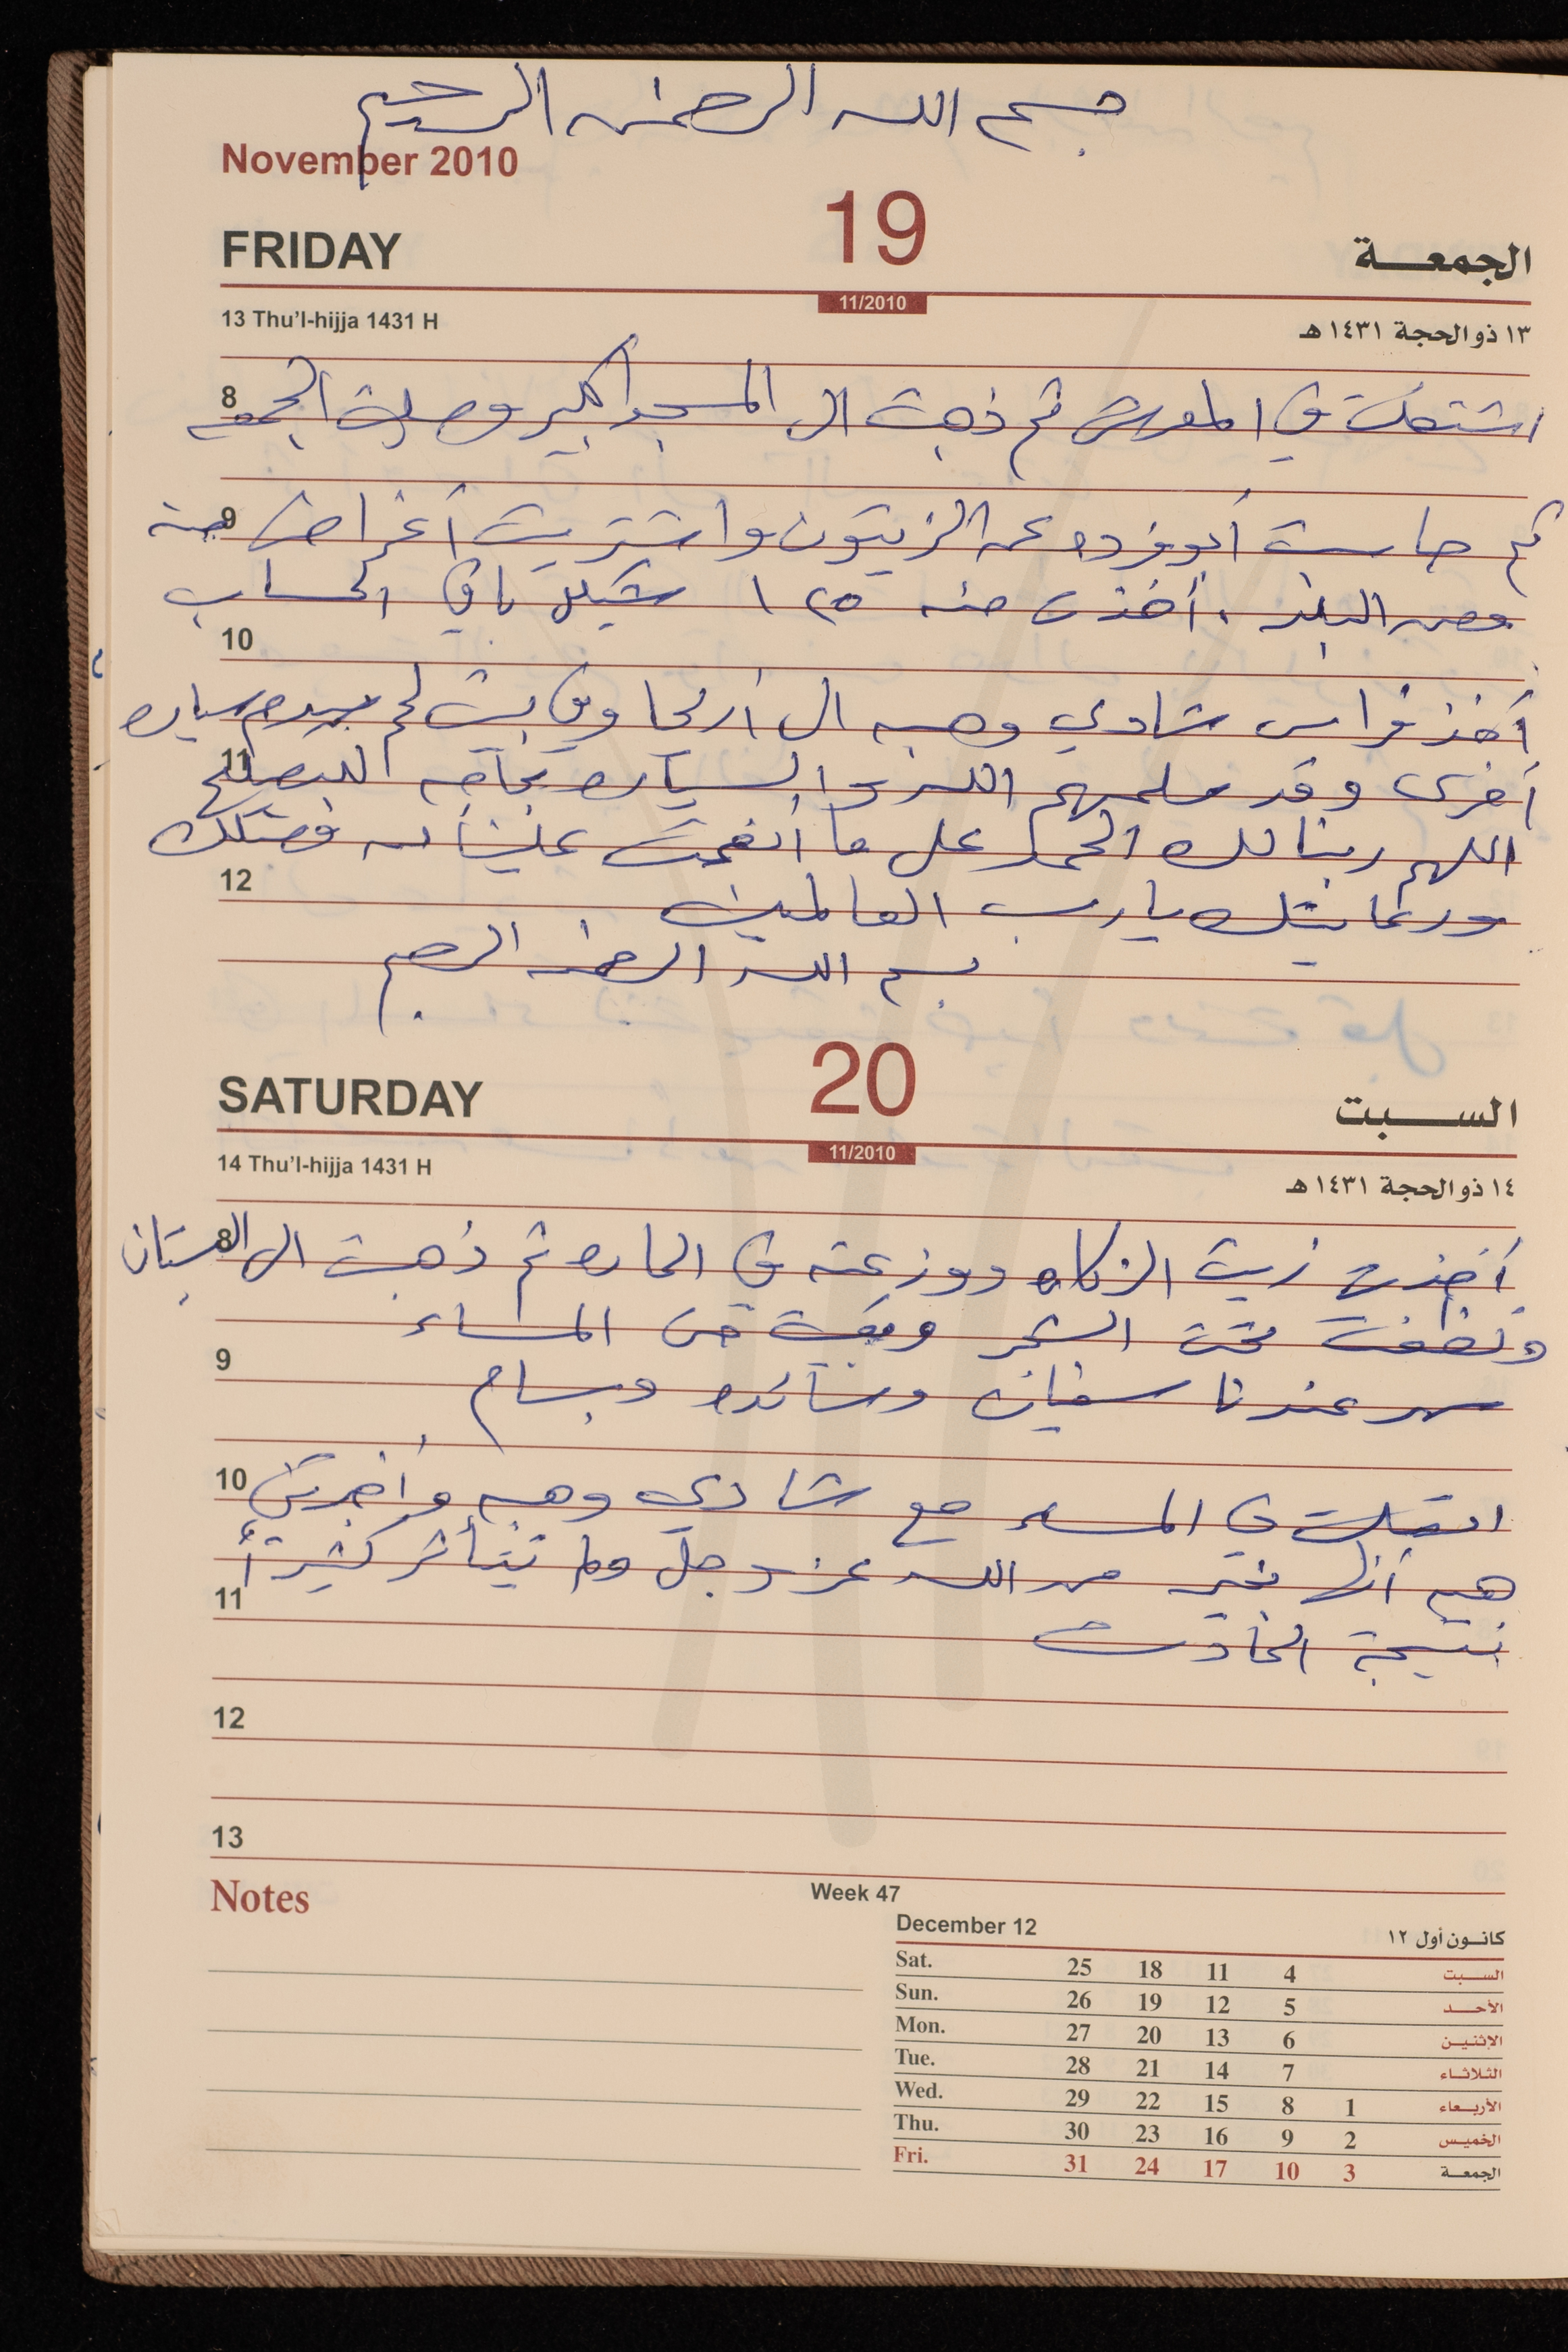 بسم الله الرحمن الرحيم
November 2010
FRIDAY 19 الجمعة
11/2010
13 Thu'l-hijja 1431 H ١٣ ذو الحجة ١٤٣١ هـ
8
اشتغلت في المعرش ثم ذهبت الى المسجد الكبير وصليت الجمعه
9
ثم حاسبت أبو فرده عن الزيتون واشتريت أغراض منه
ومن البلد، أخذت منه ١٢٥ شيكل باقي الحساب
10
أخذ فراس شادي وهبه الى أريحا وفي بيت لحم سياره
11
أخرى وقد سلمهم الله والسياره بحاجه للتصليح
اللهم ربنا لك الحمد على ما أنعمت علينا من فضلك
12
ورعايتك يا رب العالمين
بسم الله الرحمن الرحيم
SATURDAY 20 السبت
11/2010
14 Thu'l-hijja 1431 H ١٤ ذو الحجة ١٤٣١ هـ
8
أخذت زيت الزكاه ووزعته في الحاره ثم ذهبت الى البستان
ونظفت تحت الشجر وبقيت حتى المساء
9
سهر عندنا سفيان وسائده وبسام
10
اتصلت في المساء مع شادي وهبه وأخبرتني
هبه أنها بخير من الله عز وجل ولم تتأثر كثيراً
11
نتيجة الحادث
12
13
Notes
Week 47
December 12 كانون أول ١٢
Sat. 25 18 11 4 السبت
Sun. 26 19 12 5 الأحد
Mon. 27 20 13 6 الإثنين
Tue. 28 21 14 7 الثلاثاء
Wed. 29 22 15 8 1 الأربعاء
Thu. 30 23 16 9 2 الخميس
Fri. 31 24 17 10 3 الجمعة